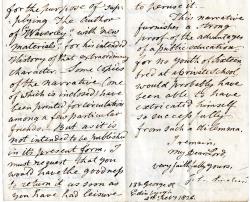 for the purpose of sup-
plying the Author
of Waverley, with new
materials, for his intended
History of that extraordinary
character. Some copies
of the narrative, one
of which is inclosed have
been printed for circulation
among a few particular
friends. But as it is
not intended to be published
in its present form, I
must request that you
would have the goodness
to return it as soon as
you have had leisure
to peruse it.
This narrative
furnishes a strong
proof of the advantages
of a public education,
for no youth of sixteen
bred at a private school
would probably have
been able to have
extricated himself
so successfully
from such a dilemma.
I remain,
my dear Lord
very faithfully yours,
Edinburgh
1826.